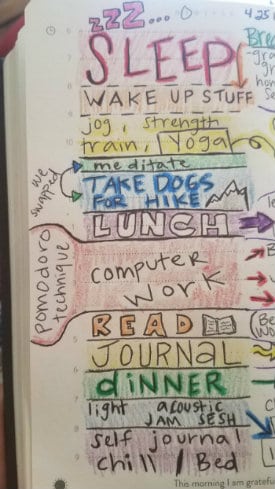 zzZ...
SLEEP
WAKE UP STUFF
jog, strength
train, Yoga
meditate
we swapped
TAKE DOGS
FOR HIKE
LUNCH
pomodoro
technique
COMPUTER
WORK
READ
JOURNAL
DiNNER
light acoustic
JAM SESH
self journal
chill / Bed
This morning I am grateful